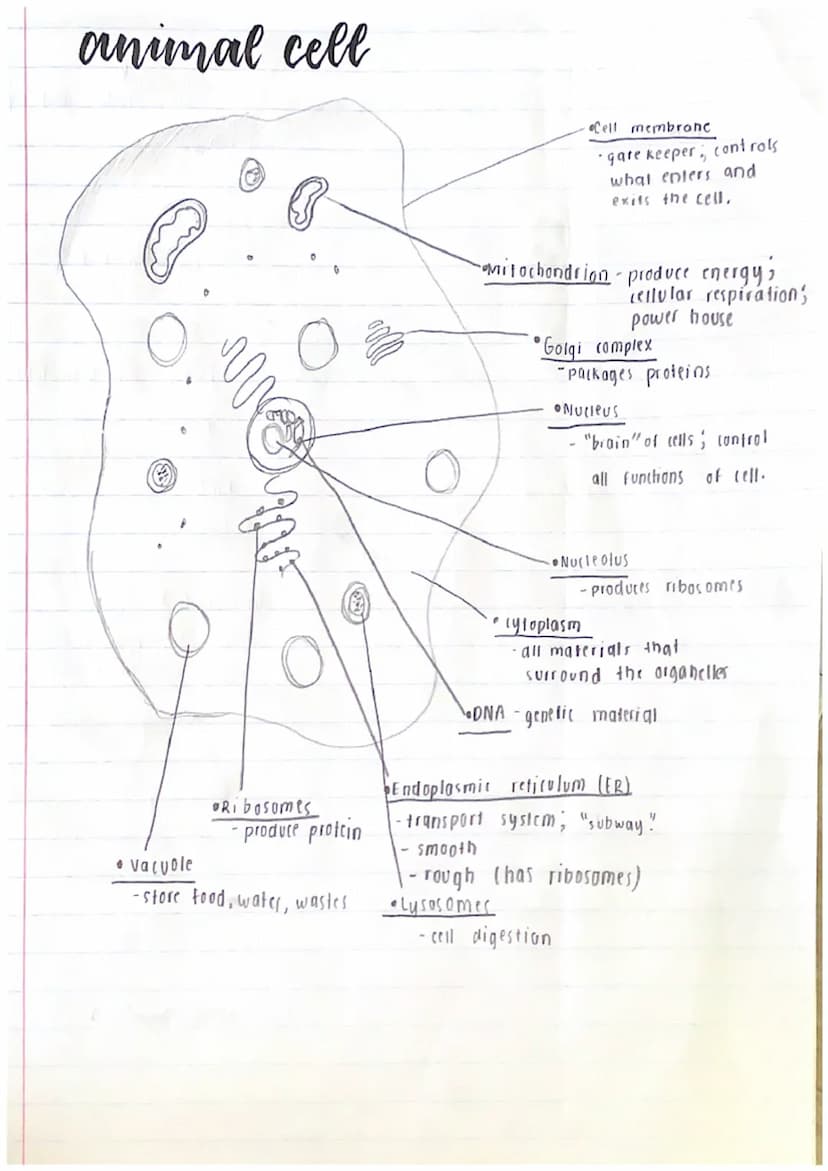 animal cell
•Cell membrane
- gate keeper; controls
what enters and
exits the cell.
•Mitochondrion - produce energy;
cellular respiration;
power house
•Golgi complex
- packages proteins
•Nucleus
- "brain" of cells; control
all functions of cell.
•Nucleolus
- produces ribosomes
•cytoplasm
- all materials that
surround the organelles
•DNA - genetic material
•Endoplasmic reticulum (ER)
- transport system; "subway"
- smooth
- rough (has ribosomes)
•Ribosomes
- produce protein
•Vacuole
- store food, water, wastes
•Lysosomes
- cell digestion